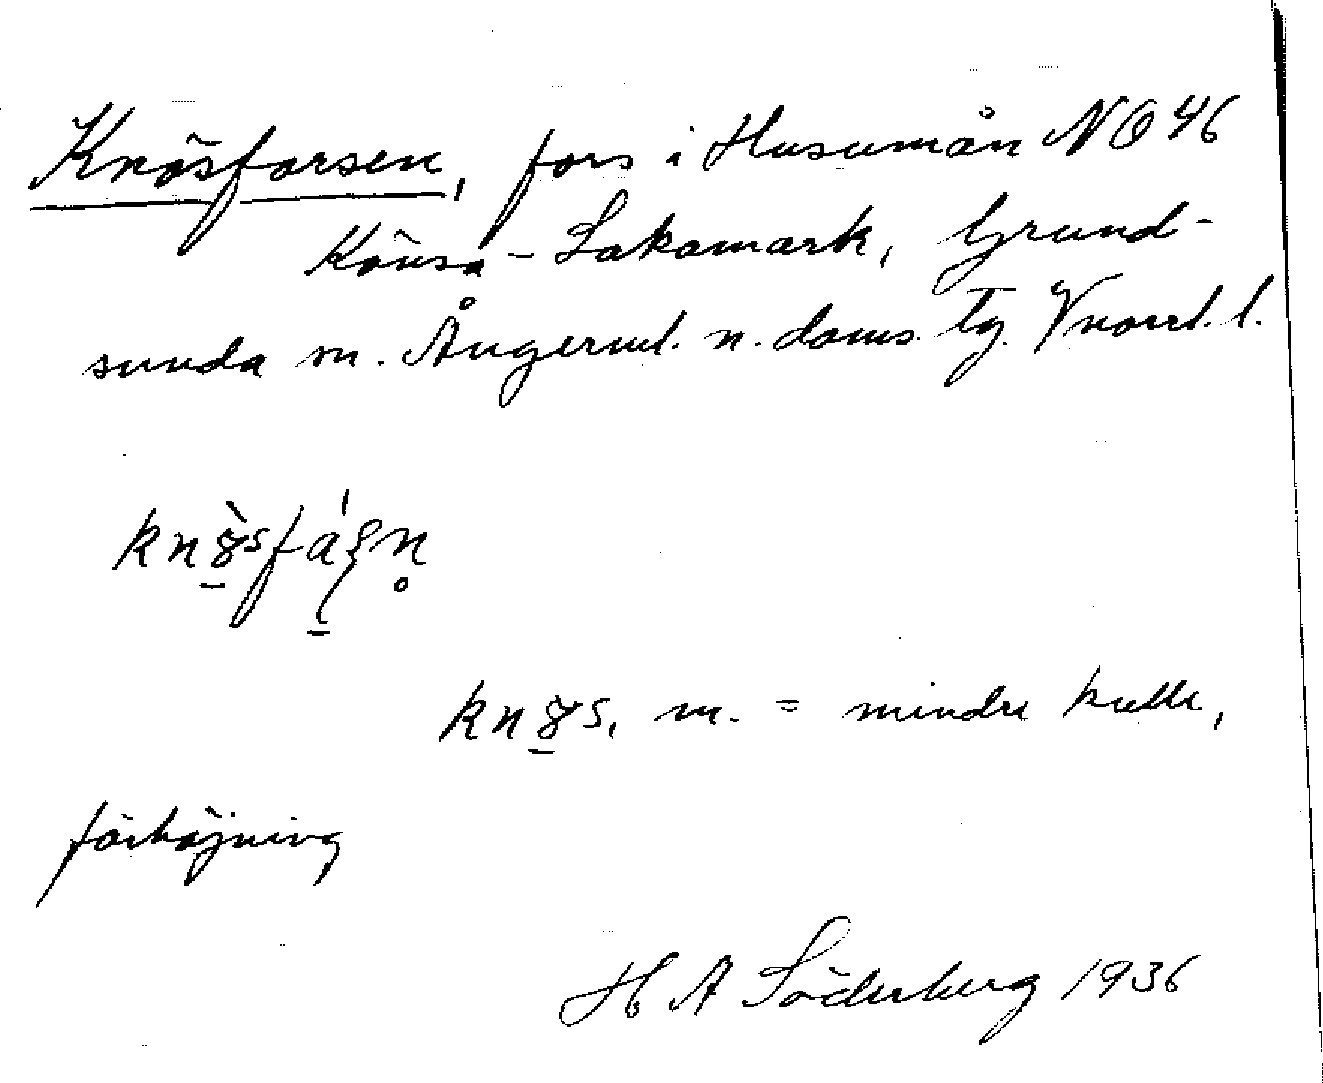 Knösforsen, fors i Husumån NO 46
Könsa - Lakamark, Grund-
sunda sn. Ångerml. n. doms. Tg. Vnorrl. l.
knö̀sfáʂn̥
knö̀s, m. = mindre kulle,
förhöjning
H A Söderberg 1936